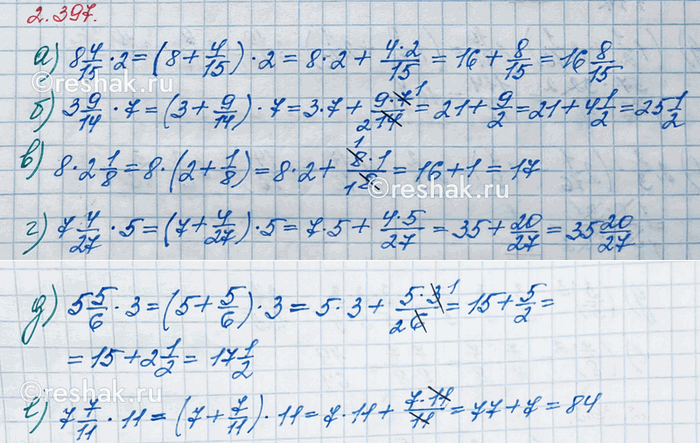 2.397.
а) 8 4/15 · 2 = (8 + 4/15) · 2 = 8 · 2 + 4·2/15 = 16 + 8/15 = 16 8/15
б) 3 9/14 · 7 = (3 + 9/14) · 7 = 3·7 + 9·7 1/2 14 = 21 + 9/2 = 21 + 4 1/2 = 25 1/2
в) 8 · 2 1/8 = 8 · (2 + 1/8) = 8 · 2 + 1 8·1/1 8 = 16 + 1 = 17
г) 7 4/27 · 5 = (7 + 4/27) · 5 = 7 · 5 + 4·5/27 = 35 + 20/27 = 35 20/27
д) 5 5/6 · 3 = (5 + 5/6) · 3 = 5 · 3 + 5·3 1/2 6 = 15 + 5/2 =
= 15 + 2 1/2 = 17 1/2
е) 7 7/11 · 11 = (7 + 7/11) · 11 = 7 · 11 + 7·11/11 = 77 + 7 = 84
©reshak.ru